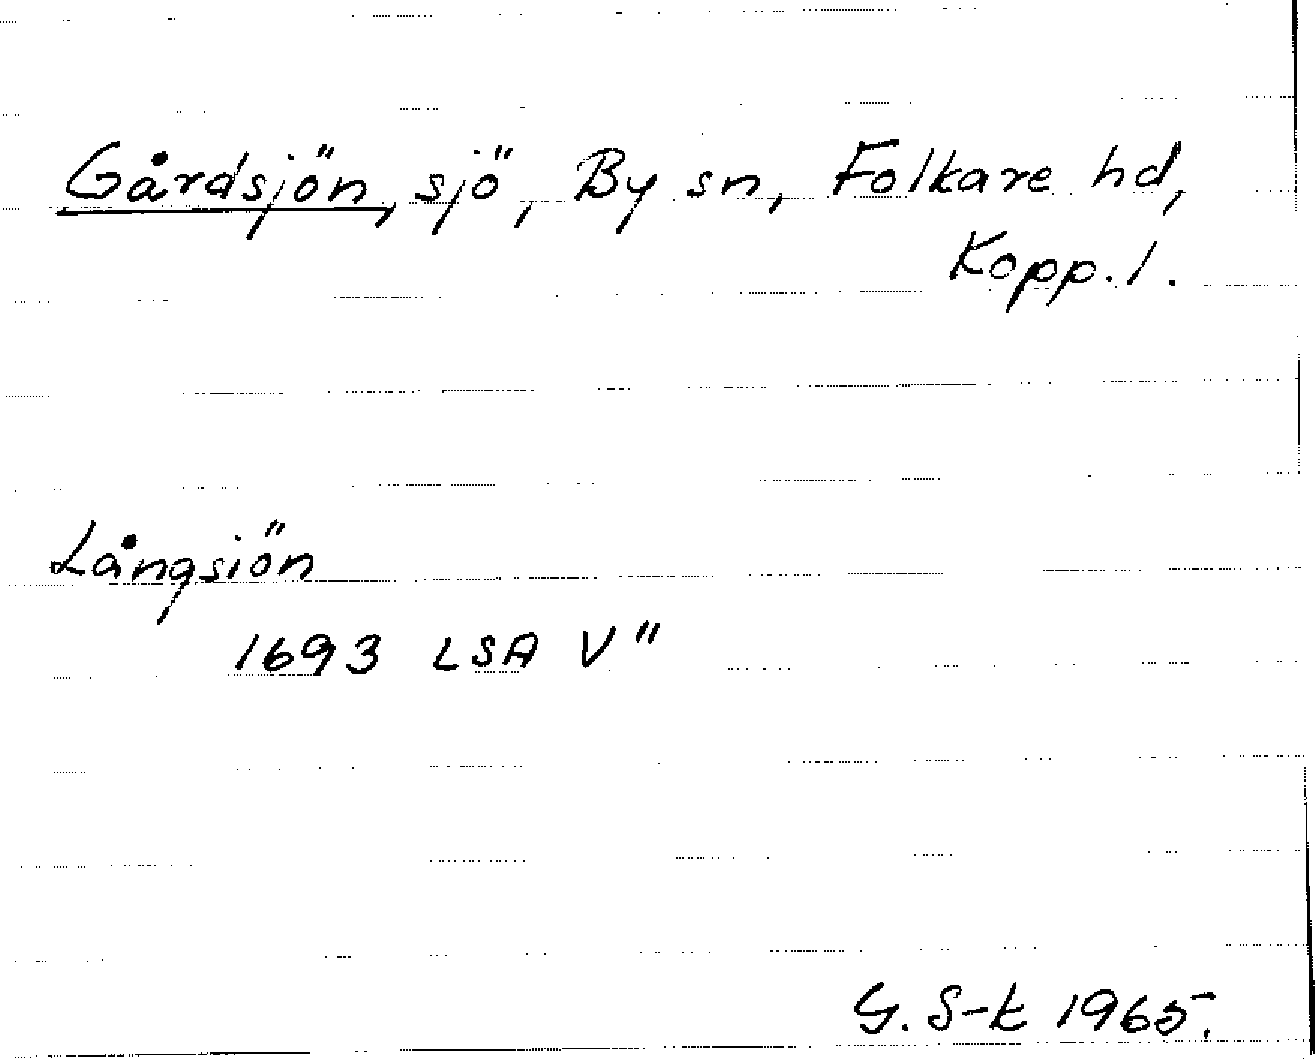 Gårdsjön, sjö, By sn, Folkare hd,
Kopp. l.
Långsiön
1693 LSA V"
G. S-k 1965.